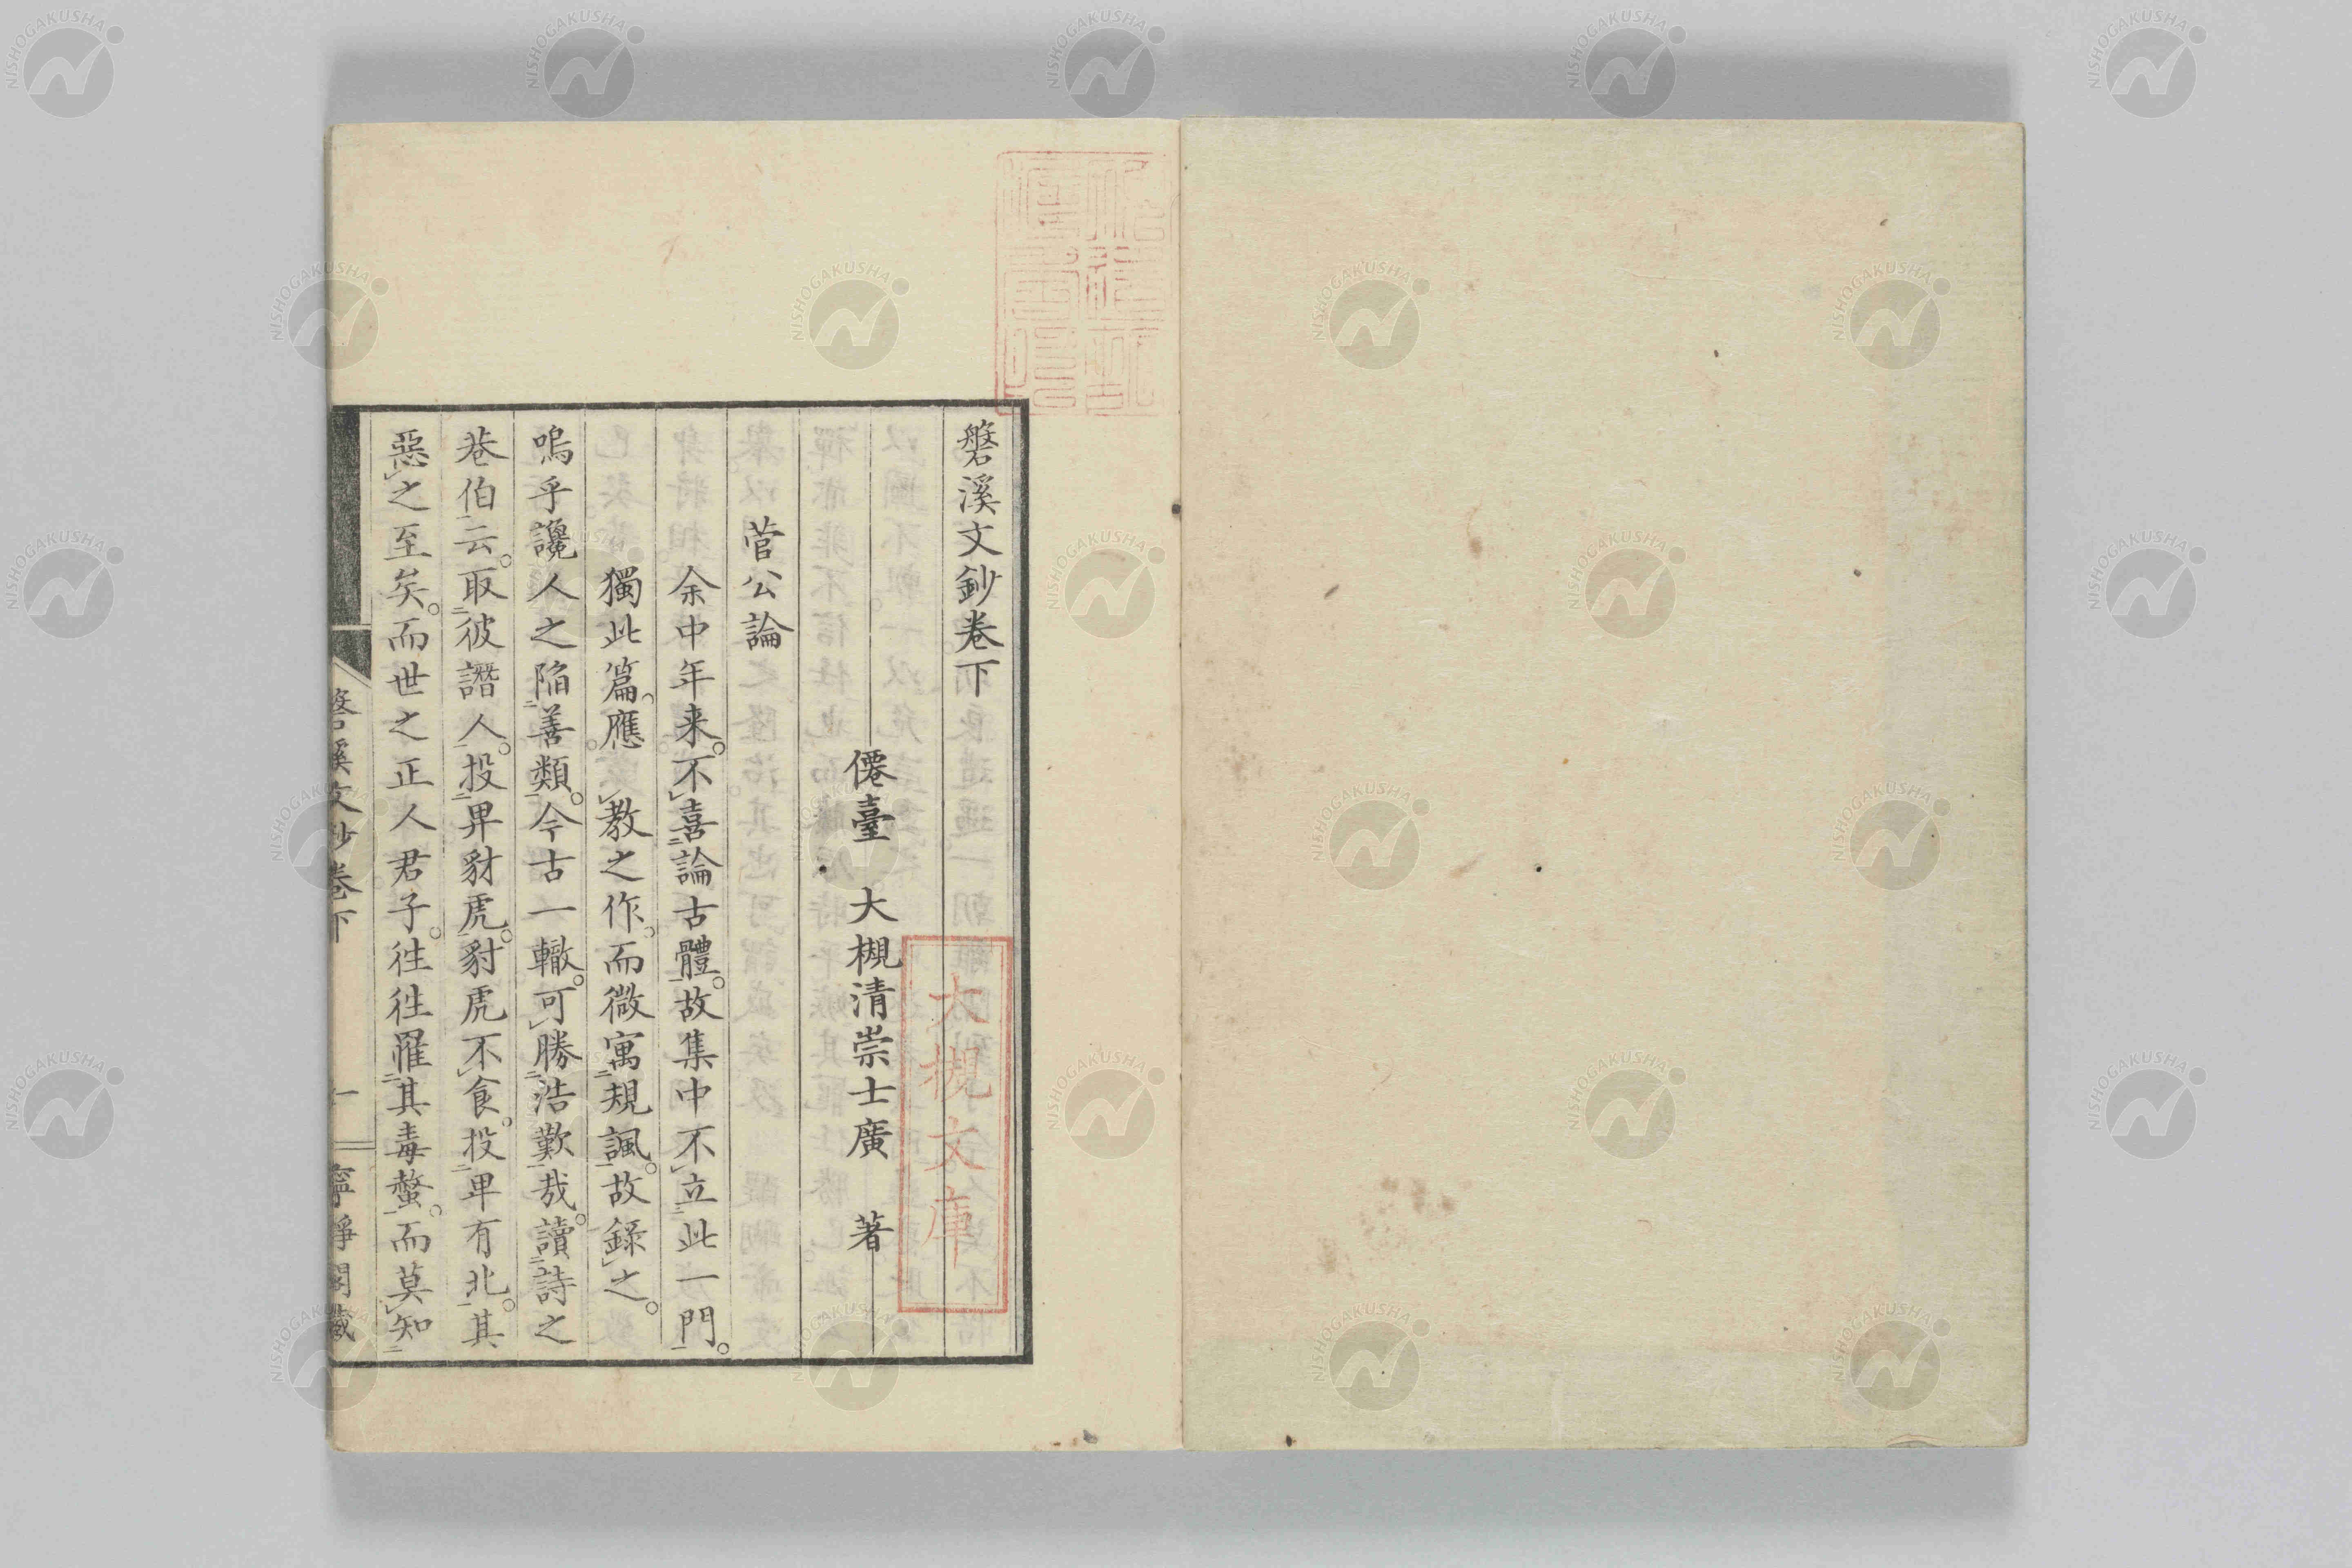 磐溪文鈔卷下
僊臺　大槻清崇士廣　著
菅公論
余中年来。不喜論古體。故集中不立此一門。
獨此篇。應教之作。而微寓規諷。故錄之。
嗚乎讒人之陥善類。今古一轍。可勝浩歎哉。讀詩之
巷伯云。取彼譖人。投畀豺虎。豺虎不食。投畀有北。其
惡之至矣。而世之正人君子。徃徃罹其毒螫。而莫知
磐溪文鈔卷下　一　寧靜閣藏
大槻文庫
NISHOGAKUSHA